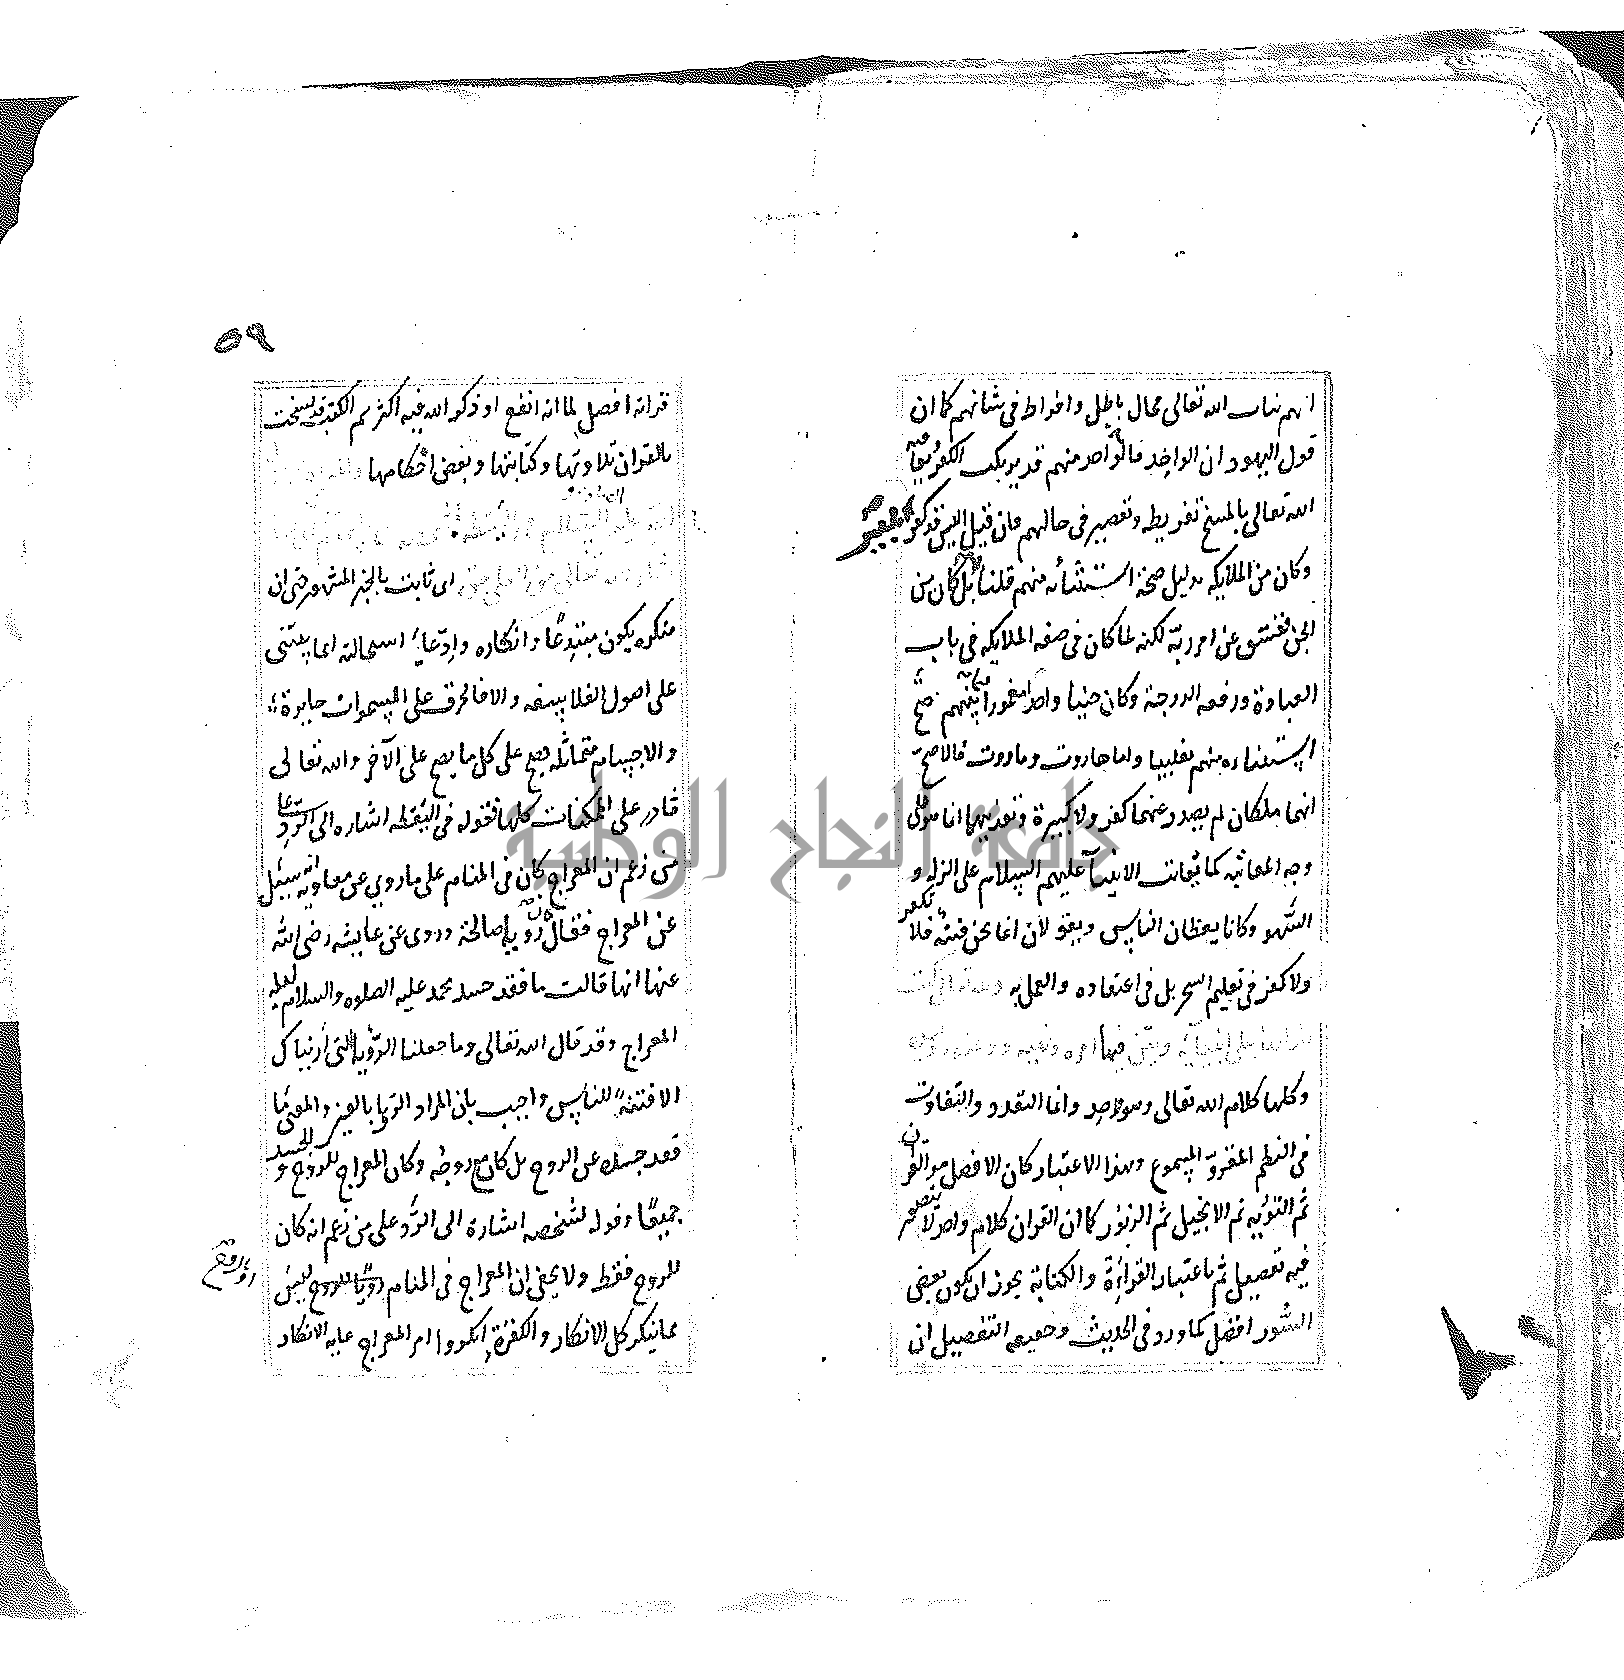 انهم بنات الله تعالى محال باطل وافراط فى شانهم كما ان
قول اليهود ان الواحد فالواحد منهم قد يرتكب الكفر ويعاقبه
الله تعالى بالمسخ تفريط وتقصير فى حالهم فان قيل اليس قد كفر ابليس
وكان من الملايكه بدليل صحة استثنائه منهم قلنا بل كان من
الجن ففسق عن امر ربه لكنه لما كان فى صفه الملايكه فى باب
العبادة ورفعه الدرجة وكان جنيا واحدا مغمورا بينهم صح
استثناوه منهم تغليبا واما هاروت وماروت فالاصح
انهما ملكان لم يصدر عنهما كفر ولا كبيرة وتعذيبهما انما هو على
وجه المعاتبه كما يعاتب الانبيآ عليهم السلام على الزله و
السهو وكانا يعظان الناس ويقولان انما نحن فتنة فلا تكفر
ولا كفر فى تعليم السحر بل فى اعتقاده والعمل به
على انبيآيه وبين فيها امره ونهيه ووعده
وكلها كلام الله تعالى وهو واحد وانما التعدد والتفاوت
فى النظم المقروّ المسموع وبهذا الاعتبار كان الافضل هو القران
ثم التوريه ثم الانجيل ثم الزبور كما ان القران كلام واحد لا يتصور
فيه تفصيل ثم باعتبار القراءة والكتابة يجوز ان يكون بعض
السور افضل كما ورد فى الحديث وحقيقه التفضيل ان
٥٩
قراته افضل لما انه انفع او ذكر الله فيه اكثر ثم الكتب قد نسخت
بالقران تلاوتها وكتابتها وبعض احكامها
اى ثابت بالخبر المشهور حتى ان
منكره يكون مبتدعًا وانكاره وادّعاء استحالته انما يبتنى
على اصول الفلاسفه والا فالخرق على السموات جايزة
والاجسام متماثله يصح على كل ما يصح على الآخر والله تعالى
قادر على الممكنات كلها فقوله فى اليقظه اشاره الى الرد على
من زعم ان المعراج كان فى المنام على ما روي عن معاويه انه سيئل
عن المعراج فقال كان رويا صالحة وروى عن عايشه رضى الله
عنها انها قالت ما فقد جسد محمد عليه الصلوه والسلام ليلة
المعراج وقد قال الله تعالى وما جعلنا الرؤيا التى اريناك
الا فتنة للناس واجيب بان المراد الرويا بالعين والمعنى ما
فقد جسده عن الروح بل كان مع روحه وكان المعراج للروح و للجسد
جميعًا وقوله بشخصه اشارة الى الرد على من زعم انه كان
للروح فقط ولا يخفى ان المعراج فى المنام رويًا للروح ليس
او بالروح
مما ينكر كل الانكار والكفرة انكروا امر المعراج غايه الانكار
جامعة النجاح الوطنية